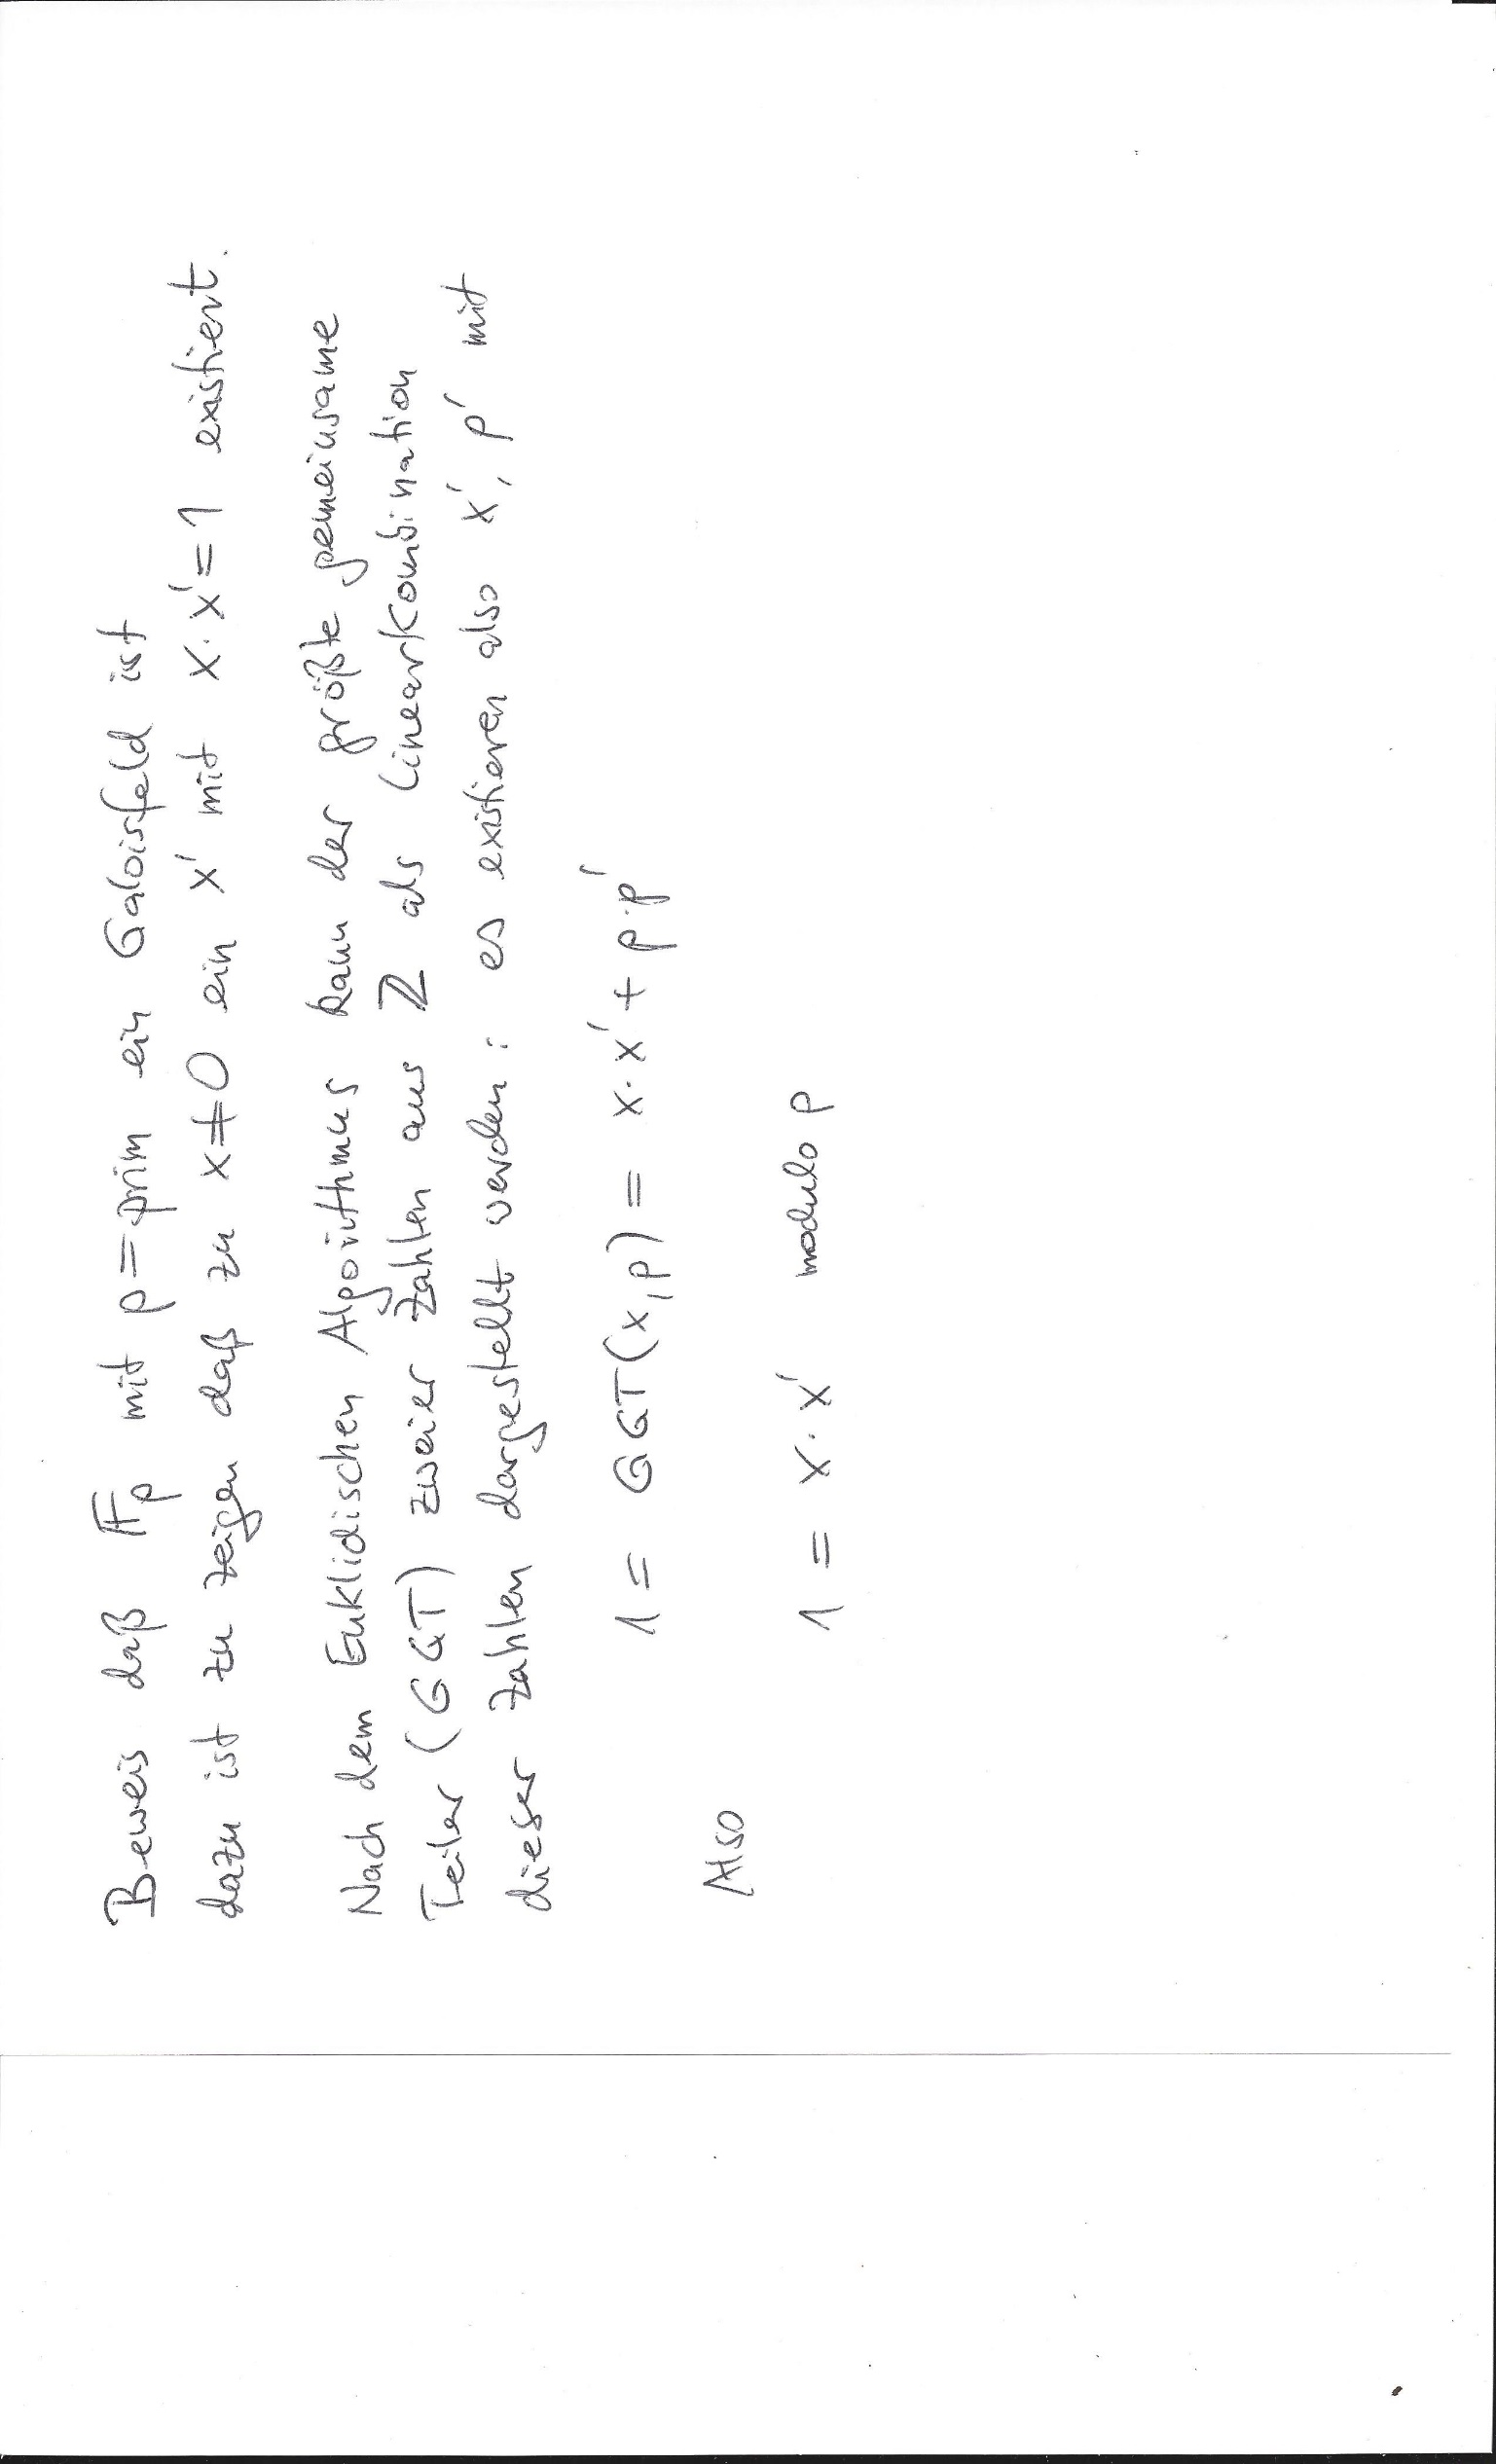 Beweis daß 𝔽p mit p = prim ein Galoisfeld ist
dazu ist zu zeigen daß zu x ≠ 0 ein x' mit x · x' = 1 existiert.
Nach dem Euklidischen Algorithmus kann der größte gemeinsame
Teiler (GGT) zweier Zahlen aus ℤ als Linearkombination
dieser Zahlen dargestellt werden: es existieren also x', p' mit
1 = GGT(x, p) = x · x' + p · p'
Also
1 = x · x' modulo p